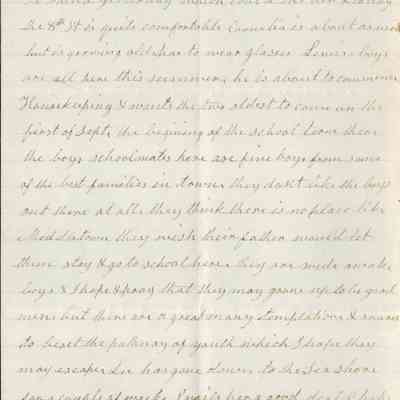 the 8th It is quite comfortable Cornelia is about as usual
but is growing old & has to wear glasses Lewis boys
are all here this summer he is about to commence
Housekeeping & wants the two oldest to come on the
first of Sept, the begining of the school term there
the boys schoolmates here are fine boys from some
of the best families in town they dont like the boys
out there at all, they think there is no place like
Middletown they wish their father would let
them stay & go to school here, they are wide awake
boys & I hope & pray that they may grow up to be good
men, but there are a great many temptations & snares
to beset the pathway of youth which I hope they
may escape. has gone down to the Sea Shore
for a couple of weeks a good deal